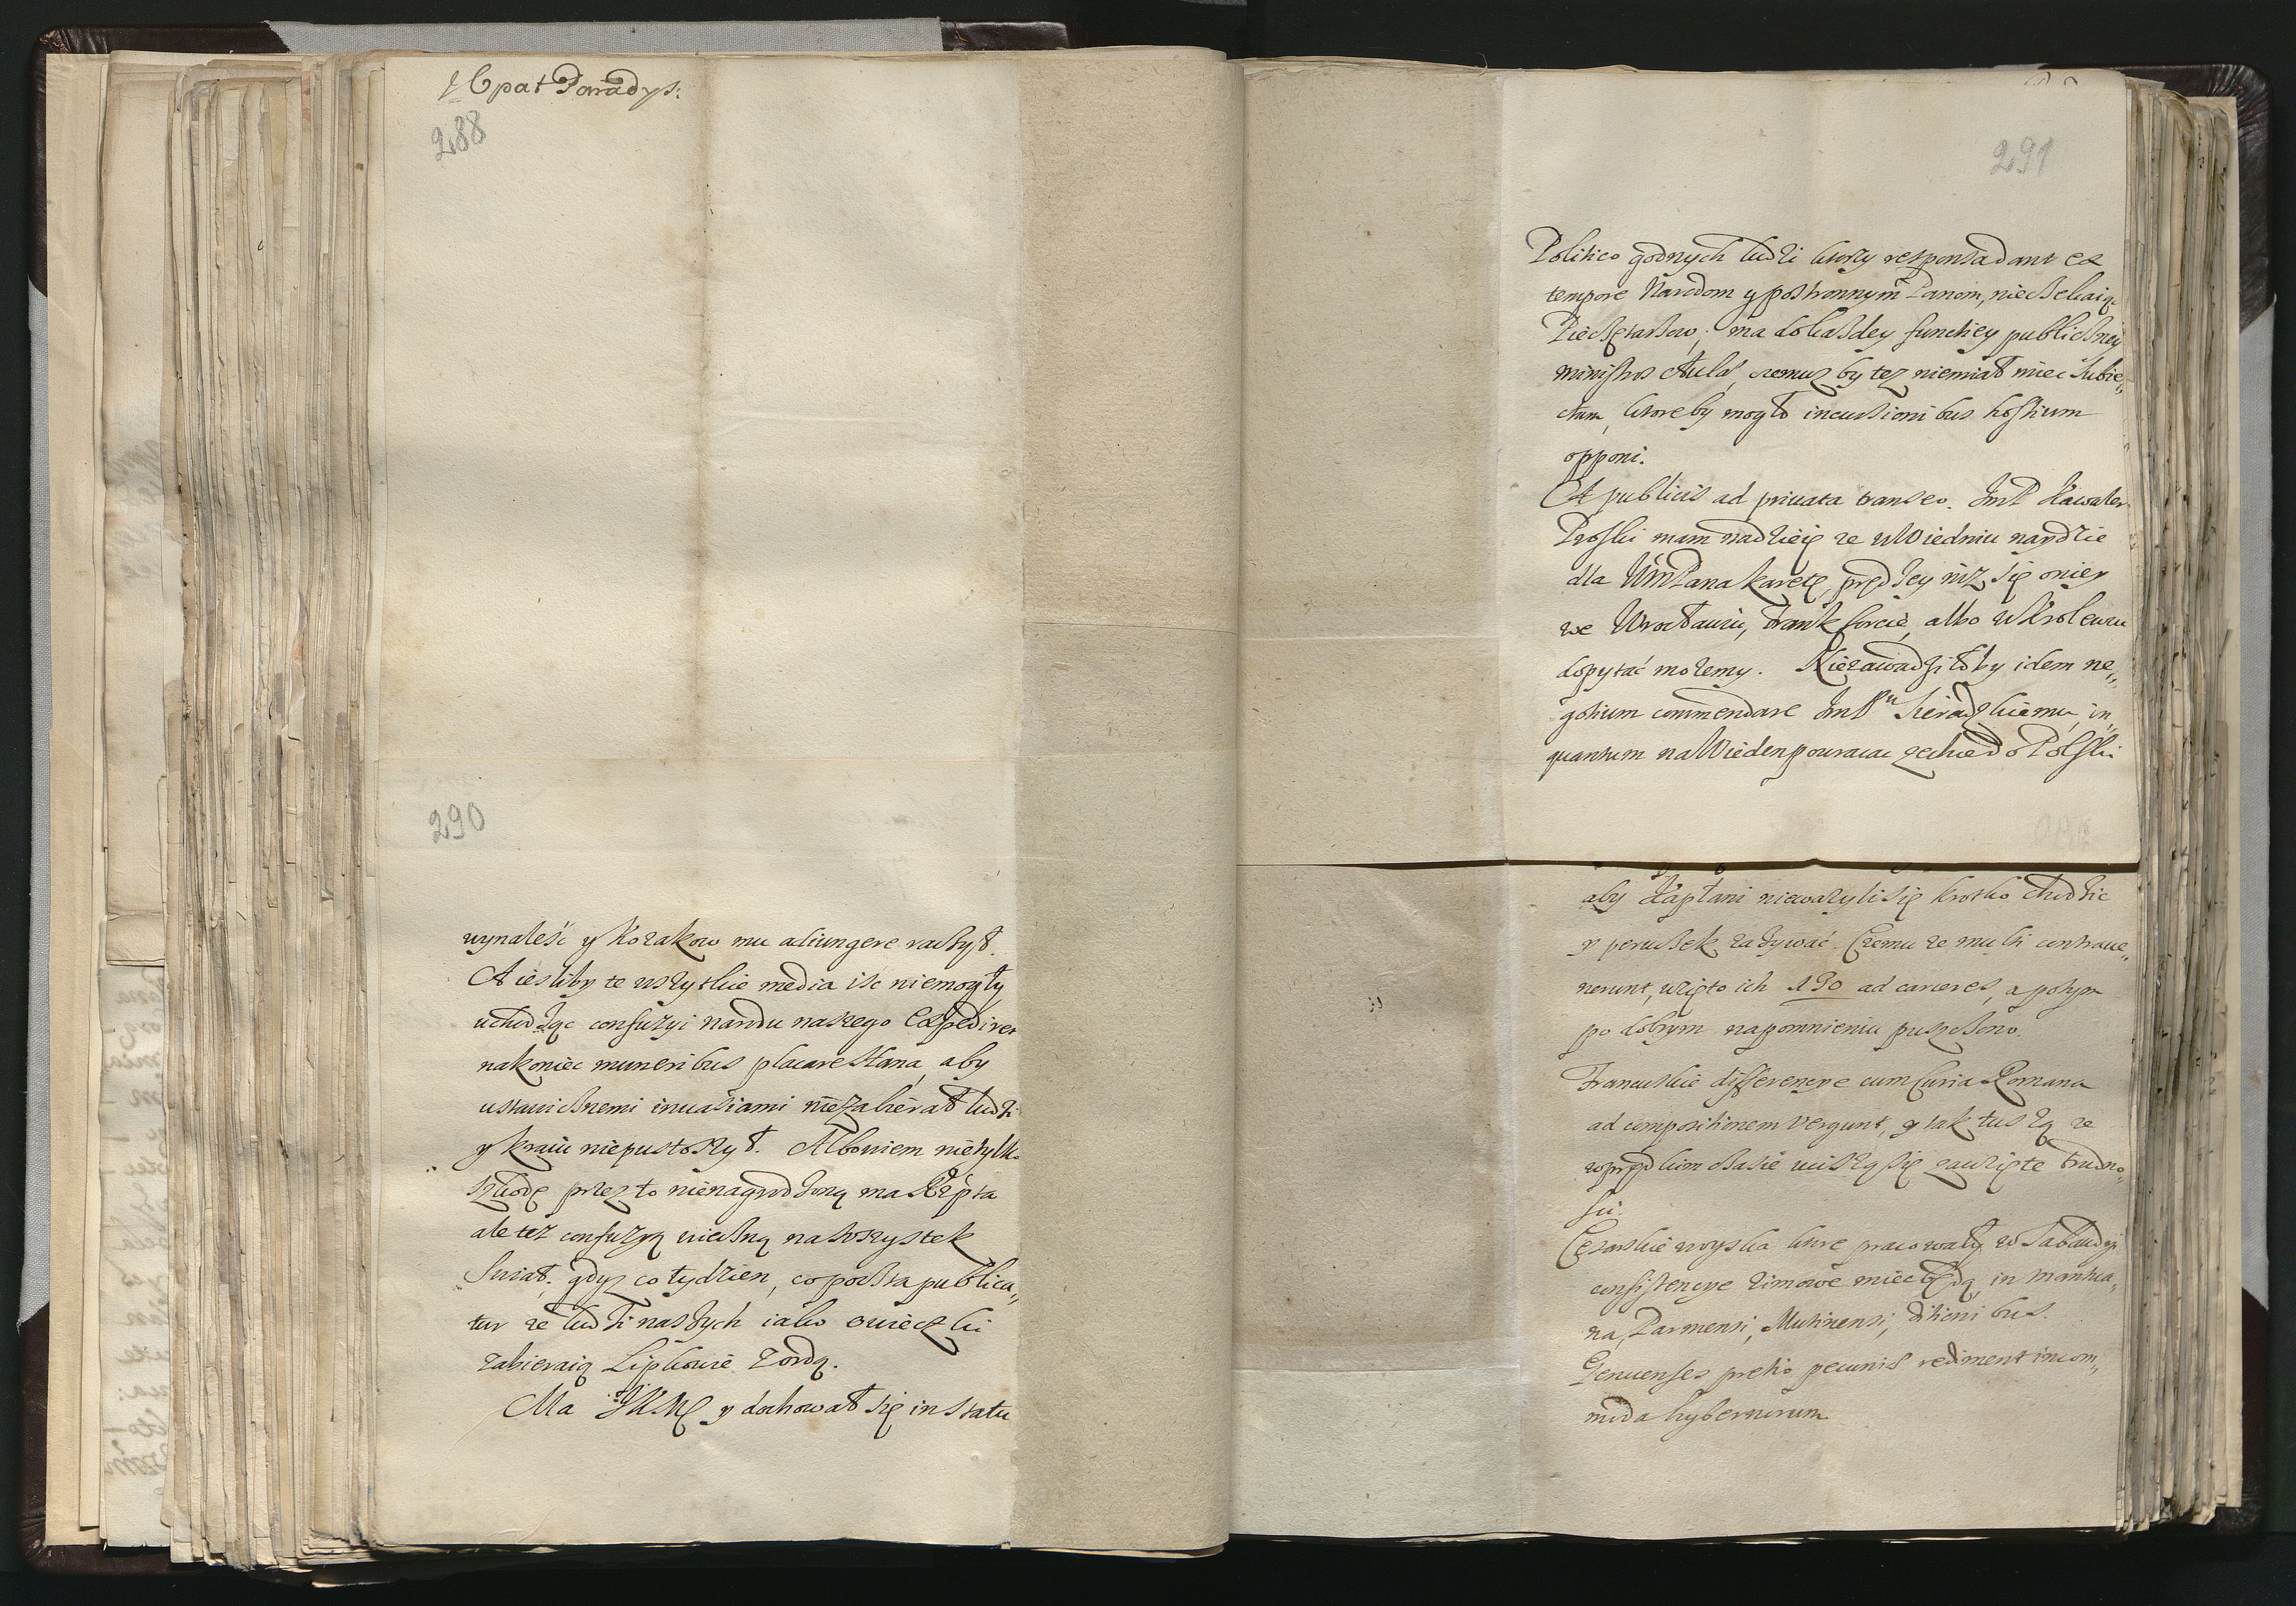 Opat Paradys:
288
290
wynaleść y Kozakow mu adiungere raczył.
A iesliby te wszytkie media isc niemogły
uchodząc confuzyi narodu naszego expediret
nakoniec muneribus placare Hana, aby
ustawicznemi inuasiami niezabierał ludzi
y kraiu niepustoszył. Albowiem nietylko
szkodę przez to nienagrodzoną ma Rzpta
ale tez confuzyą wieczną na wszystek
Swiat. gdyz co tydzien, co poczta publica„
tur ze ludzi naszych iako owieczki
zabieraią Lipkowie z ordą.
Ma JKMć y dochował się in statu
291
Politico godnych ludzi ktorzy respondadant ex
tempore Narodom y postronnym Panom, nieczekaiąc
Pieczętarzow, ma do kazdey functiey publiczney
ministros Aulæ, czemuz by tez niemiał miec Subie„
ctum, ktore by mogło incursionibus hostium
opponi.
A publicis ad priuata transeo. JmP Kawaler
Proski mam nadzieię ze w Wiedniu naydzie
dla WmPana karetę, prędzey niz się oniey
we Wrocławiu, Frankforcie, albo w Krolewcu
dopytać mozemy. Niezawadziłoby idem ne„
gotium commendare JmPu Sieradzkiemu, in„
quantum na Wieden powracac zechce do Polski
aby Kapłani niewazyli się krotko chodzic
y peruczek zazywać. Czemu ze multi contraue„
nerunt, wzięto ich 190 ad carceres, a potym
po dobrym napomnieniu puszczono.
Francuskie differencye cum Curia Romana
ad compositionem vergunt, y tak tuszą ze
w prędkim czasie uciszą się zawzięte trudno„
sci.
Cesarskie woyska ktore pracowały w Sabaudyi
consistencye zimowe miec będą in Mantua„
na, Parmensi, Mutinensi, ditionibus.
Genuenses pretio pecuniæ rediment incom„
moda hybernorum.